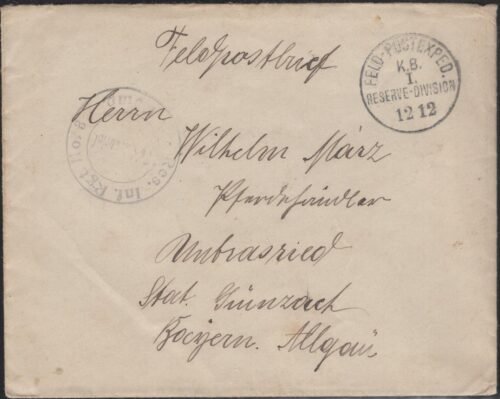 Feldpostbrief
FELD-POSTEXPED.
K.B.
I.
RESERVE-DIVISION
12 12
Herrn
Res. Inf. Rgt. No.
Wilhelm März
Pferdehändler
Untrasried
Stat. Günzach
Bayern. Allgäu